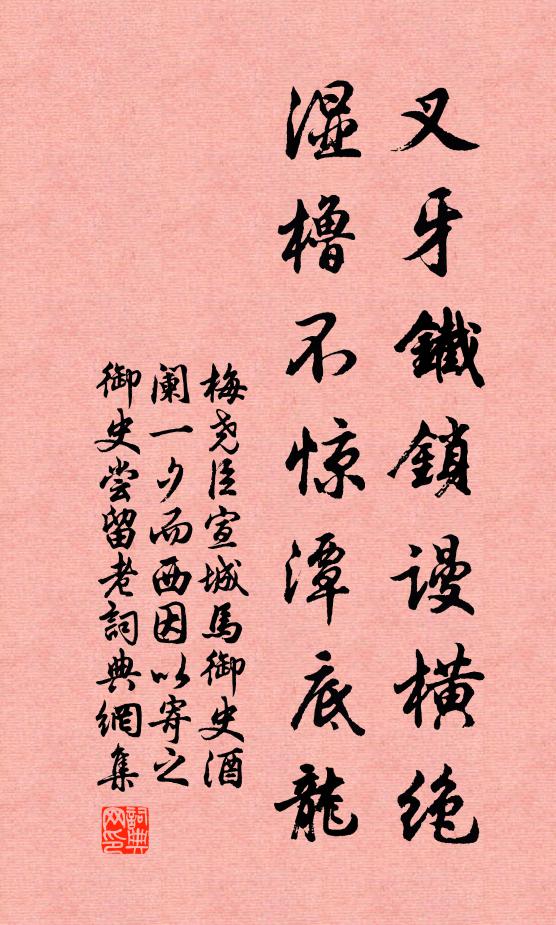 叉牙鐵鎖謾橫绝
湿櫓不惊潭底龍
梅尧臣宣城馬御史酒
阑一夕而西因以寄之
御史嘗留老詞典網集
詞典网印